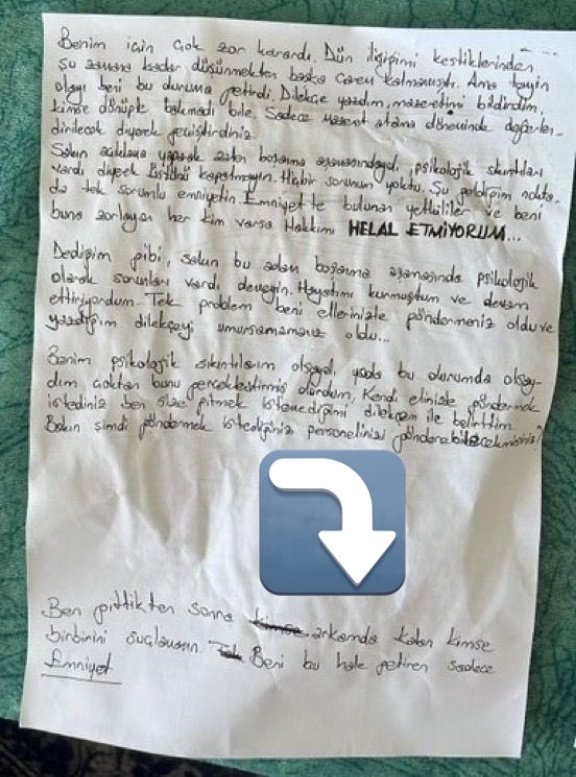 Benim için çok zor karardı. Dün ilişiğimi kestiklerinden
şu zamana kadar düşünmekten başka çarem kalmamıştı. Ama tayin
olayı beni bu duruma getirdi Dilekçe yazdım, mazeretimi bildirdim,
kimse dönüpte bakmadı bile. Sadece mazeret atama döneminde değerlen-
dirilecek diyerek geçiştirdiniz.
Sakın açıklama yaparak zaten boşanma aşamasındaydı, psikolojik sıkıntıları
vardı diyerek üstünü kapatmayın. Hiçbir sorunum yoktu. Şu geldiğim nokta-
da tek sorumlu emniyettir. Emniyet'te bulunan yetkililer ve beni
buna zorlayan her kim varsa Hakkımı HELAL ETMİYORUM...
Dediğim gibi, sakın bu adam boşanma aşamasında psikolojik
olarak sorunları vardı demeyin. Hayatımı kurmuştum ve devam
ettiriyordum. Tek problem beni ellerinizle göndermeniz oldu ve
yazdığım dilekçeyi umursamamanız oldu...
Benim psikolojik sıkıntılarım olsaydı, yada bu durumda olsay-
dım çoktan bunu gerçekleştirmiş olurdum. Kendi elinizle göndermek
istediniz ben size gitmek istemediğimi dilekçem ile belirttim.
Bakın şimdi göndermek istediğiniz personelinizi gönderebilecekmisiniz?
Ben gittikten sonra arkamda kalan kimse
birbirini suçlamasın. Beni bu hale getiren sadece
Emniyet